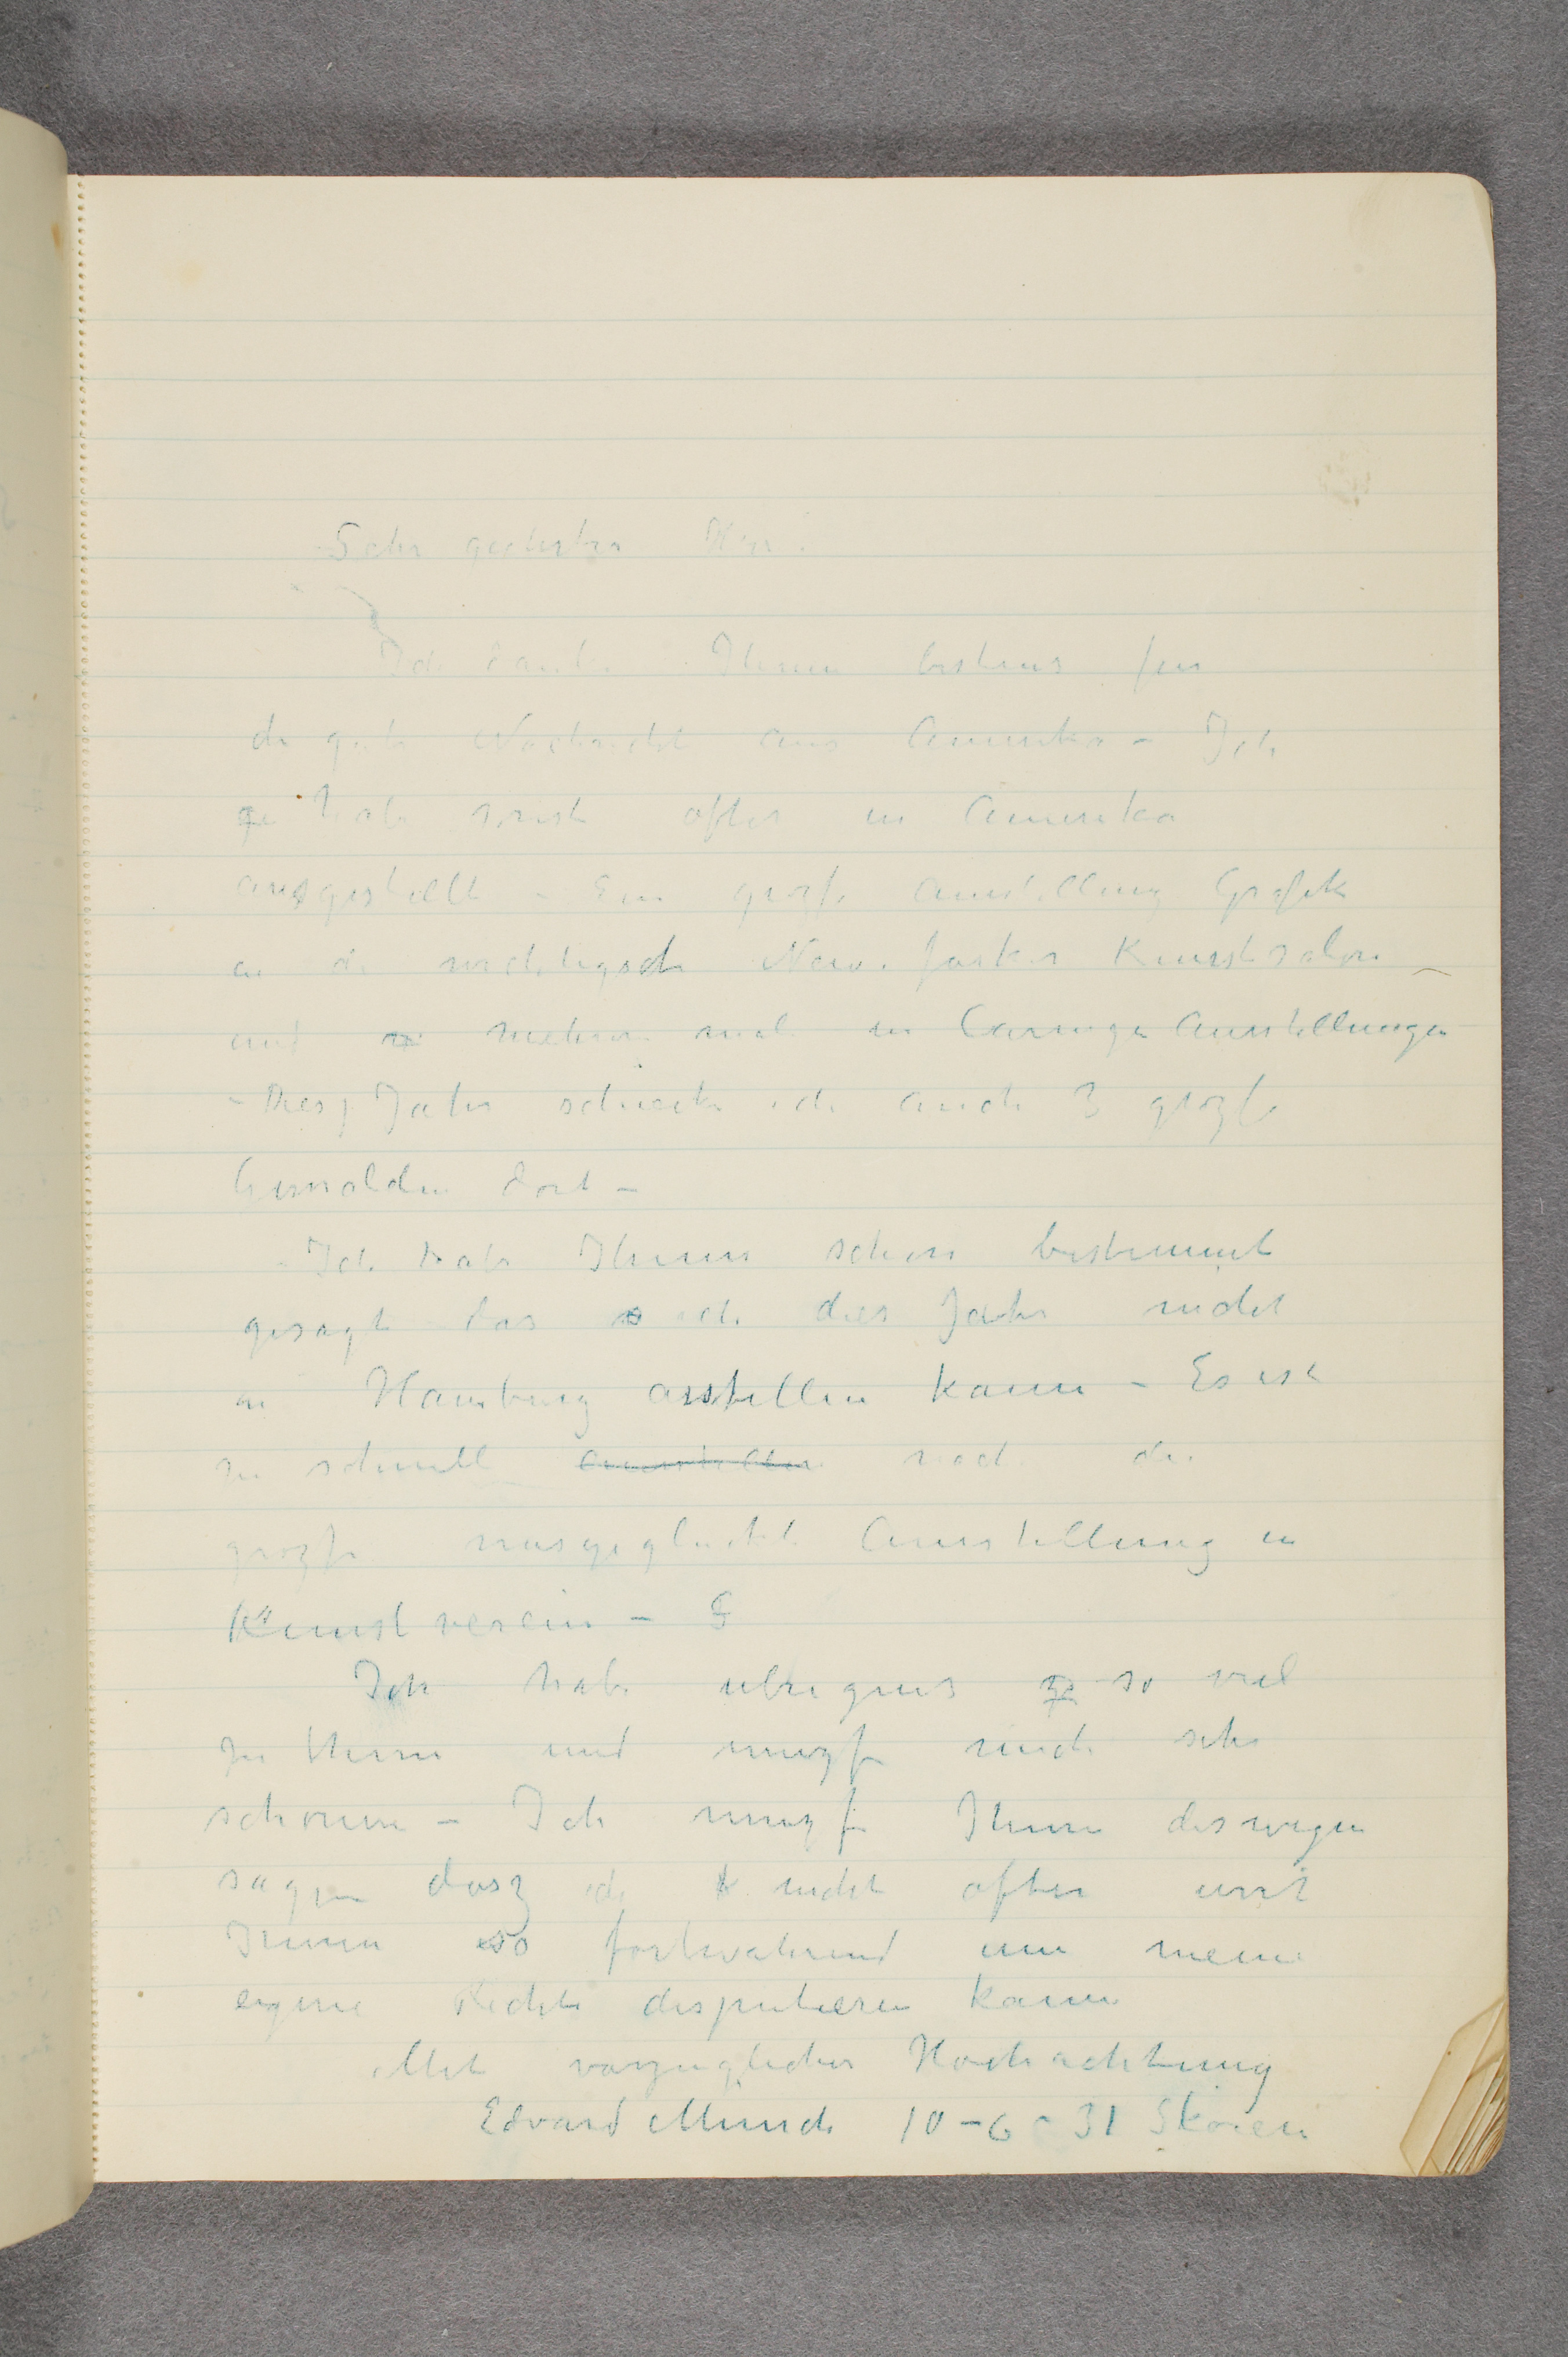 Sehr geehrter Herr!
Ich danke Ihnen bestens für
die gute Nachricht aus Amerika – Ich
habe sonst ofter in Amerika
ausgestellt – Ein grozse Ausstellung Grafik
in de wichtigsde New. Jorker Kunstsalon
und mehrere mal in Carnegie Ausstellungen
– Dies Jahr schicke ich auch 3 grozse
Gemälden dort –
– Ich habe Ihnen schon bestemmt
gesagt das ich dies Jahr nicht
in Hamburg austellen kann – Es ist
zu schnell ausstellen nach die
grozse misgeglückte Ausstellung in
Kunstverein –
Ich habe ubrigens so viel
zu thun und muzs mich sehr
schonen – Ich muzs Ihnen deswegen
sagen dasz ich nicht ofter mit
Ihnen so fortwahrend um meine
eigene Rechte disputieren kann
Mit vorzuglicher Hochachtung
Edvard Munch 10–6–31 Skøien